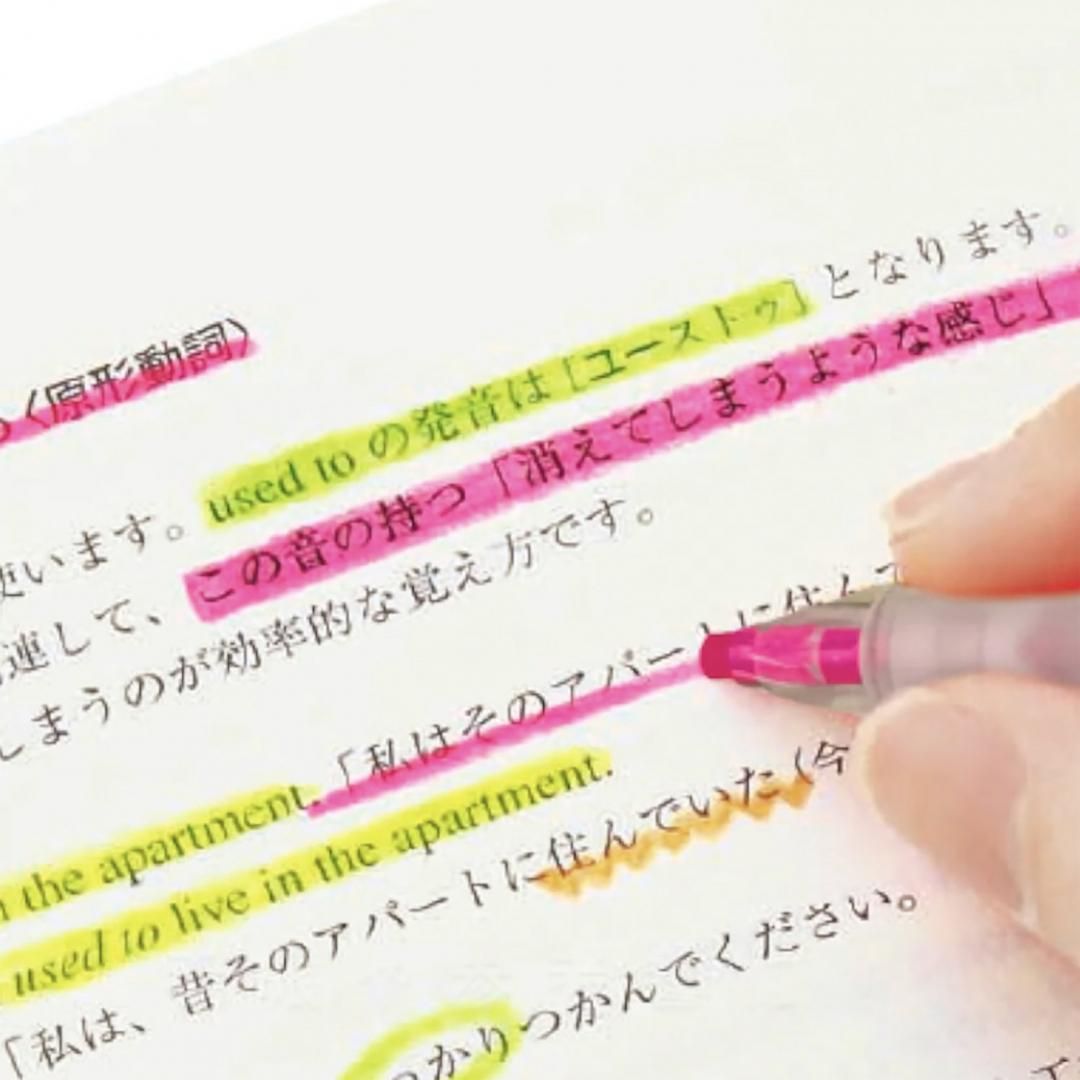 〈原形動詞〉
使います。used to の発音は [ユーストゥ] となります。
連して、この音の持つ「消えてしまうような感じ」
しまうのが効率的な覚え方です。
the apartment.「私はそのアパートに住んで
used to live in the apartment.
「私は、昔そのアパートに住んでいた（今
っかりつかんでください。